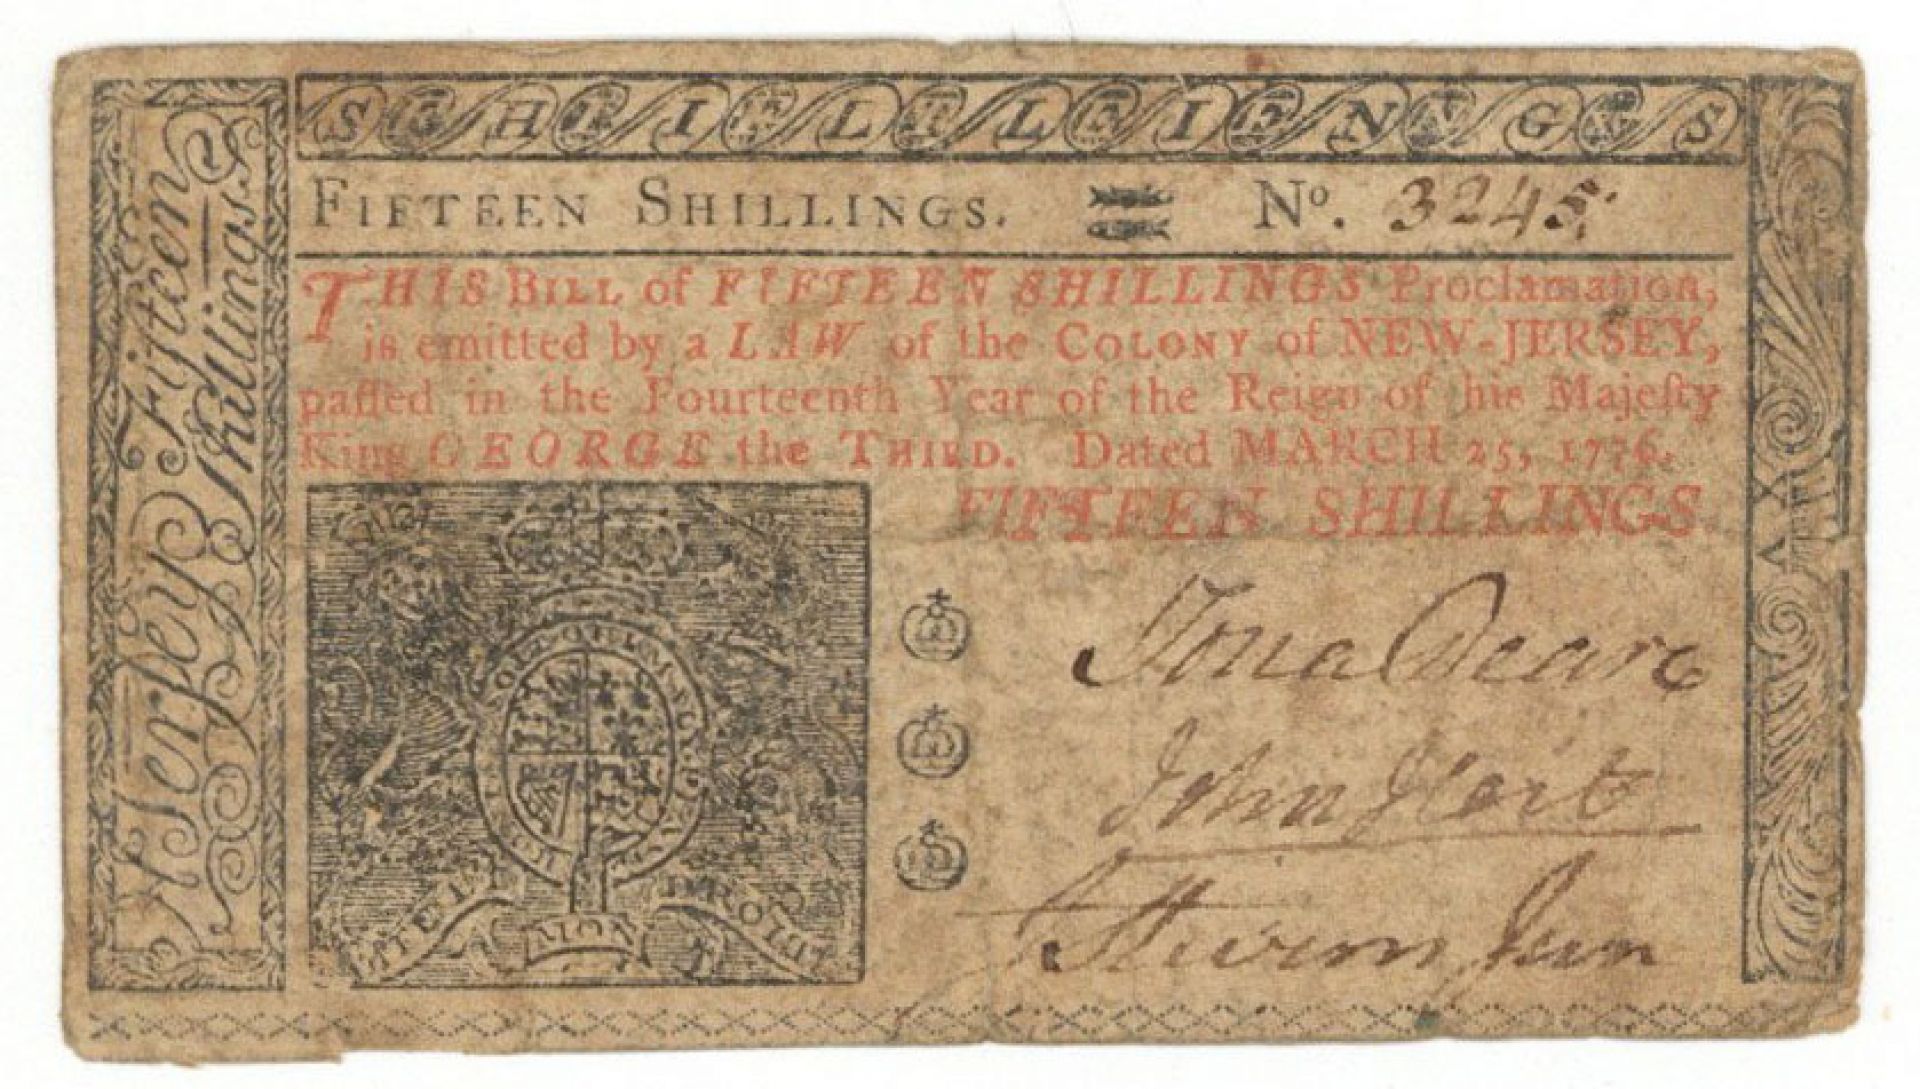 SCHTIELTLEIENNVGES
FIFTEEN SHILLINGS. No. 3245
THIS BILL of FIFTEEN SHILLINGS Proclamation,
is emitted by a LAW of the COLONY of NEW-JERSEY,
paſſed in the Fourteenth Year of the Reign of his Majeſty
King GEORGE the THIRD. Dated MARCH 25, 1776.
FIFTEEN SHILLINGS
Jona Deare
John Hart
Stevens Jun
Fifteen
Shillings
MON
DROIT
XV